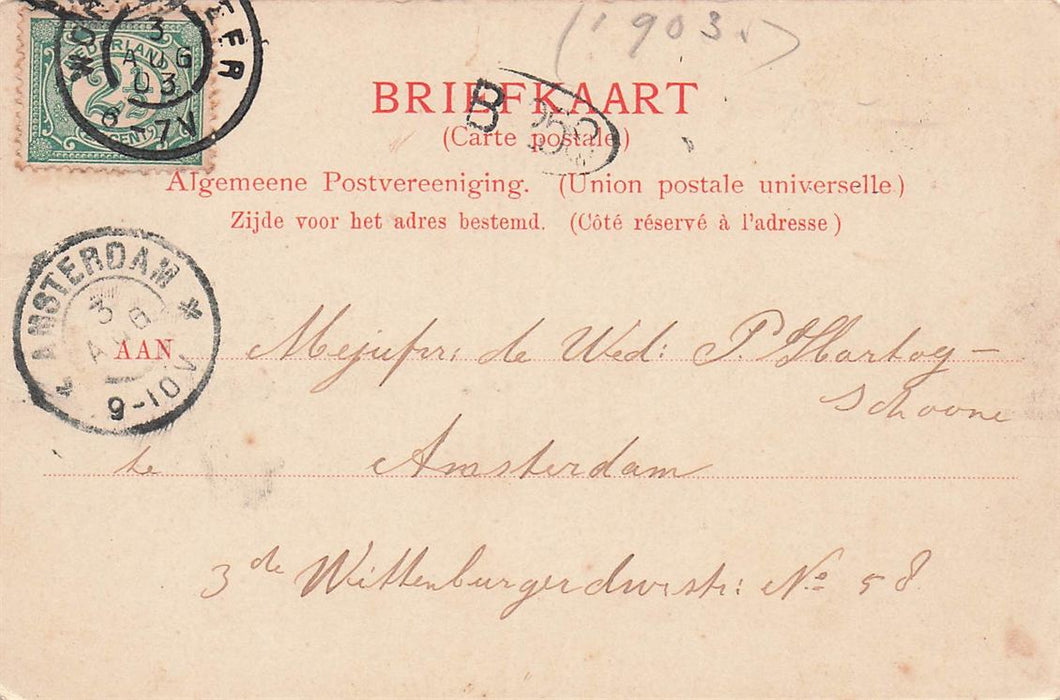 ('903.)
NEDERLAND
2½
CENT
3
AUG
03
6-7V
BRIEFKAART
B
(Carte postale)
Algemeene Postvereeniging. (Union postale universelle)
Zijde voor het adres bestemd. (Côté réservé à l'adresse)
AMSTERDAM
3 8
9-10V
AAN Mejufr: de Wed: P. Hartog-
Schoone
te Amsterdam
3de Wittenburgerdwrstr: No 58